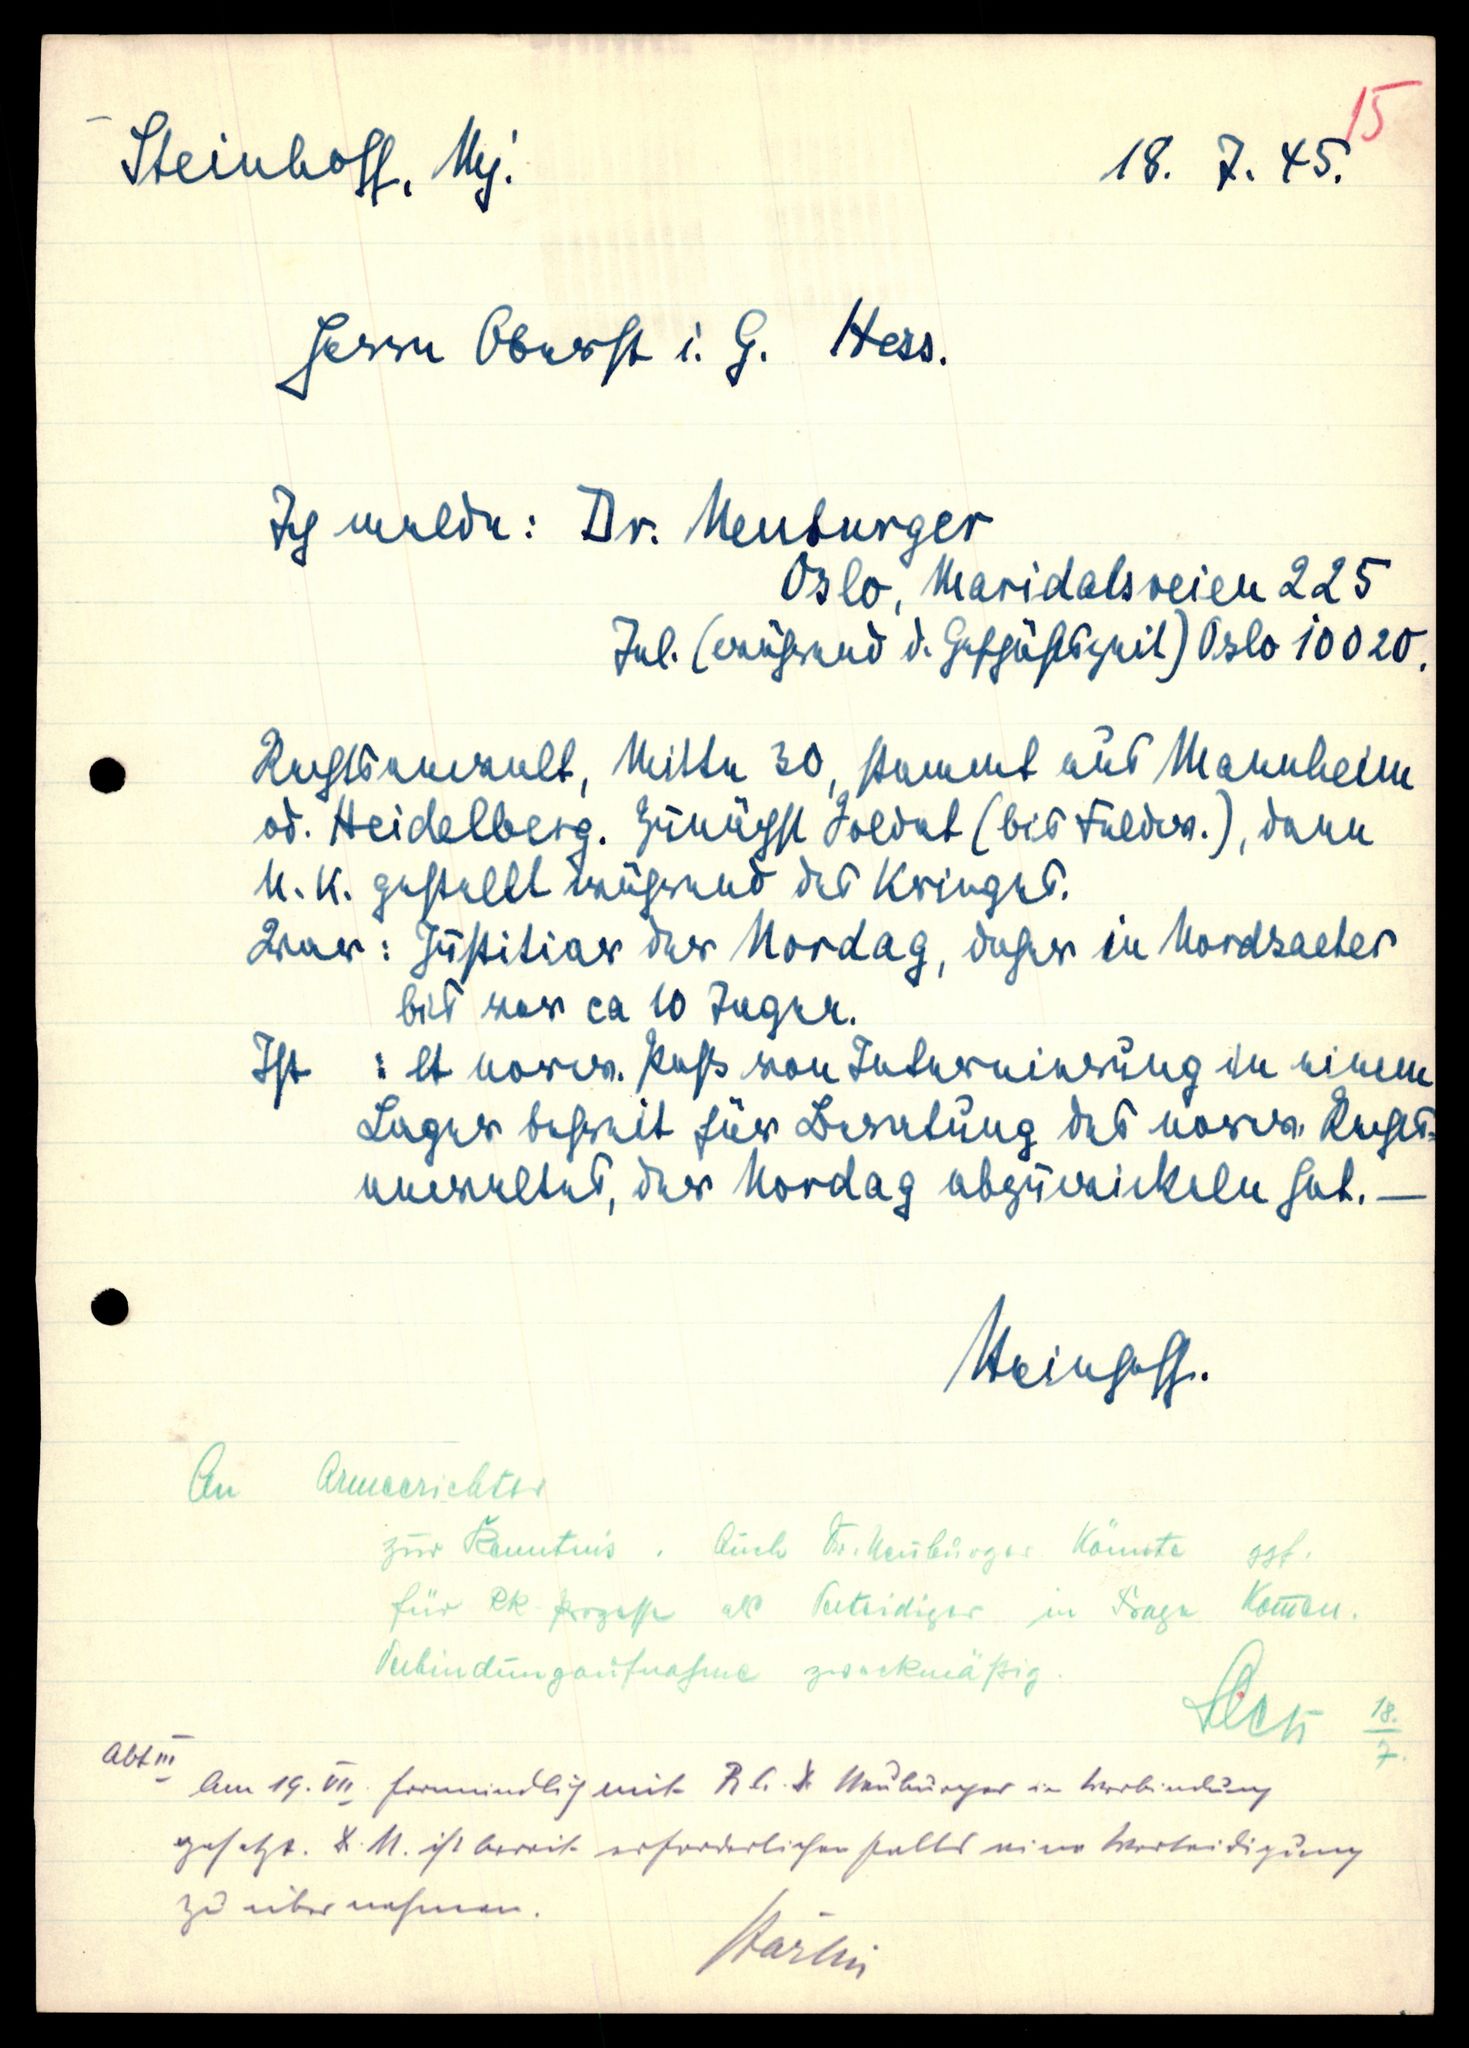 15
Steinhoff, Mj.
18. 7. 45.
Herrn Oberst i. G. Hess.
Ich melde: Dr. Neuburger
Oslo, Maridalsveien 225
Tel. (während d. Geschäftszeit) Oslo 10020.
Rechtsanwalt, Mitte 30, stammt aus Mannheim
od. Heidelberg. Zunächst Soldat (bis Feldw.), dann
U. K. gestellt während des Krieges.
War: Justitiar der Nordag, daher in Nordsaeter
bis vor ca 10 Tagen.
Ist : lt norw. Pass von Internierung in einem
Lager befreit für Beratung des norw. Rechts-
anwaltes, der Nordag abzuwickeln hat. —
Steinhoff.
An Armeerichter
zur Kenntnis. Auch Dr. Neuburger könnte ggf.
für RK-Prozesse als Verteidiger in Frage kommen.
Verbindungaufnahme zweckmäßig.
18./7.
Abt III
Am 19. VII. fernmündlich mit R.A. Dr Neuburger in Verbindung
gesetzt. Dr. N. ist bereit erforderlichenfalls eine Verteidigung
zu übernehmen.